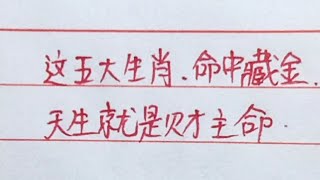 这五大生肖.命中藏金.
天生就是财主命.